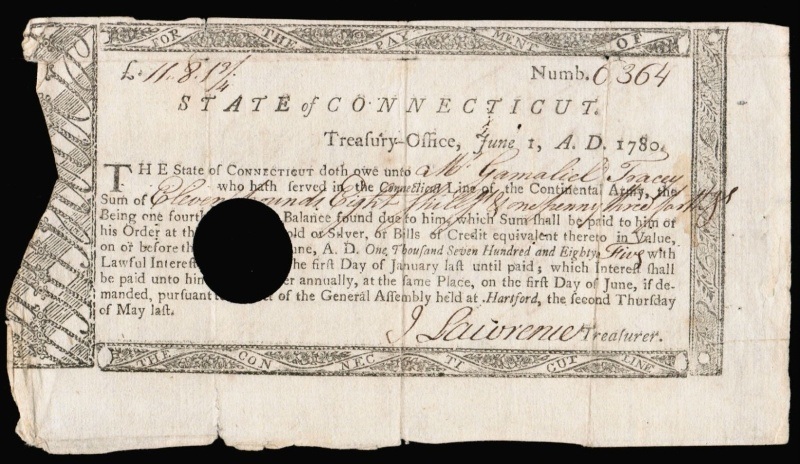 FOR THE PAYMENT OF
£. 11.8.1 3/4
Numb. 6364
STATE of CONNECTICUT.
Treasury-Office, June 1, A. D. 1780.
THE State of CONNECTICUT doth owe unto Mr Gamaliel Tracey
who hath served in the Connecticut Line of the Continental Army, the
Sum of Eleven pounds Eight shillgs & one penny three farthings
Being one fourth Balance found due to him, which Sum shall be paid to him or
his Order at th old or Silver, or Bills of Credit equivalent thereto in Value,
on or before th une, A. D. One Thousand Seven Hundred and Eighty Five with
Lawful Interes the first Day of January last until paid; which Interest shall
be paid unto him er annually, at the same Place, on the first Day of June, if de-
manded, pursuant t t of the General Assembly held at Hartford, the second Thursday
of May last.
J Lawrence Treasurer.
THE CONNECTICUT LINE